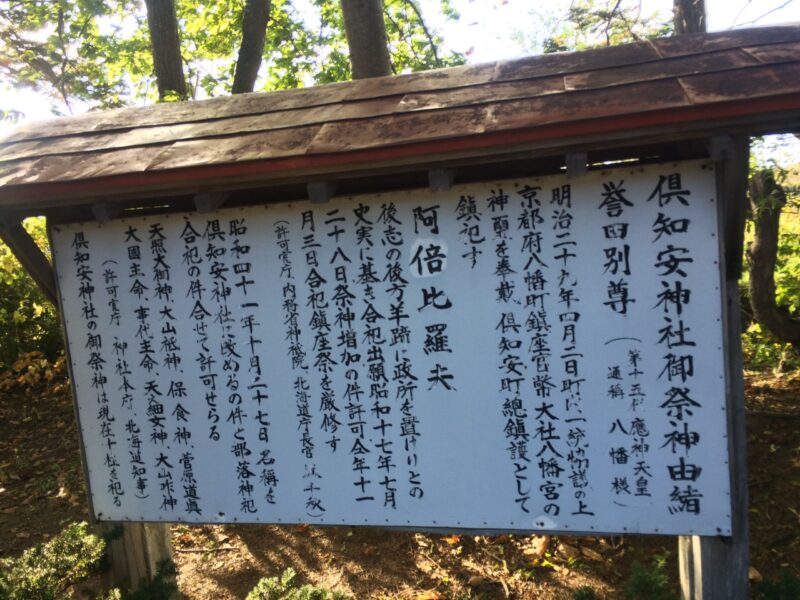 倶知安神社御祭神由緒
誉田別尊
第十五代 應神天皇
通稱 八幡様
明治二十九年四月二日町に一紛協議の上
京都府八幡町鎮座官幣大社八幡宮の
神靈を奉戴、倶知安町總鎮護として
鎮祀す
阿倍比羅夫
後志の後方羊蹄に政所を置けりとの
史実に基き合祀出願昭和十七年七月
二十八日祭神増加の件許可仝年十一
月三日合祀鎮座祭を厳修す
(許可官庁、内務省神祇院、北海道庁長官
昭和四十一年十月二十七日名稱を
倶知安神社に改めるの件と部落神祀
合祀の件合せて許可せらる
天照大御神、大山祗神、保食神、菅原道真
大國主命、事代主命、天細女神、大山咋神
(許可官庁 神社本庁、北海道知事)
倶知安神社の御祭神は現在十柱を祀る